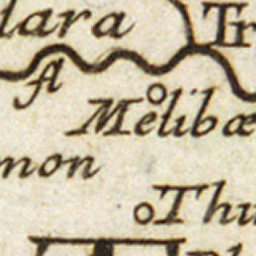 lara
Tr
fl
Melibæ
mon
Thu